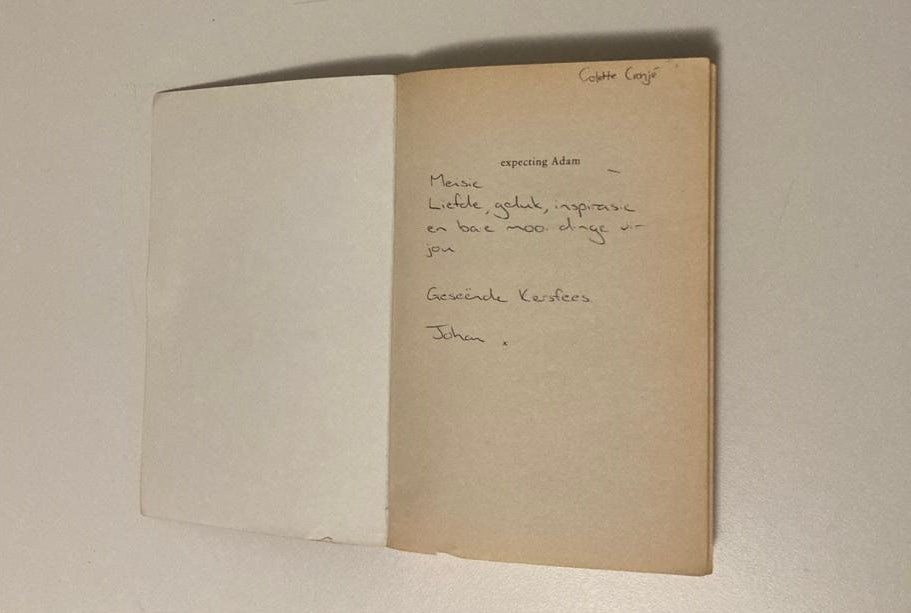 Colette Cronjé
expecting Adam
Meisie
Liefde, geluk, inspirasie
en baie mooi dinge vir
jou
Geseënde Kersfees
Johan x